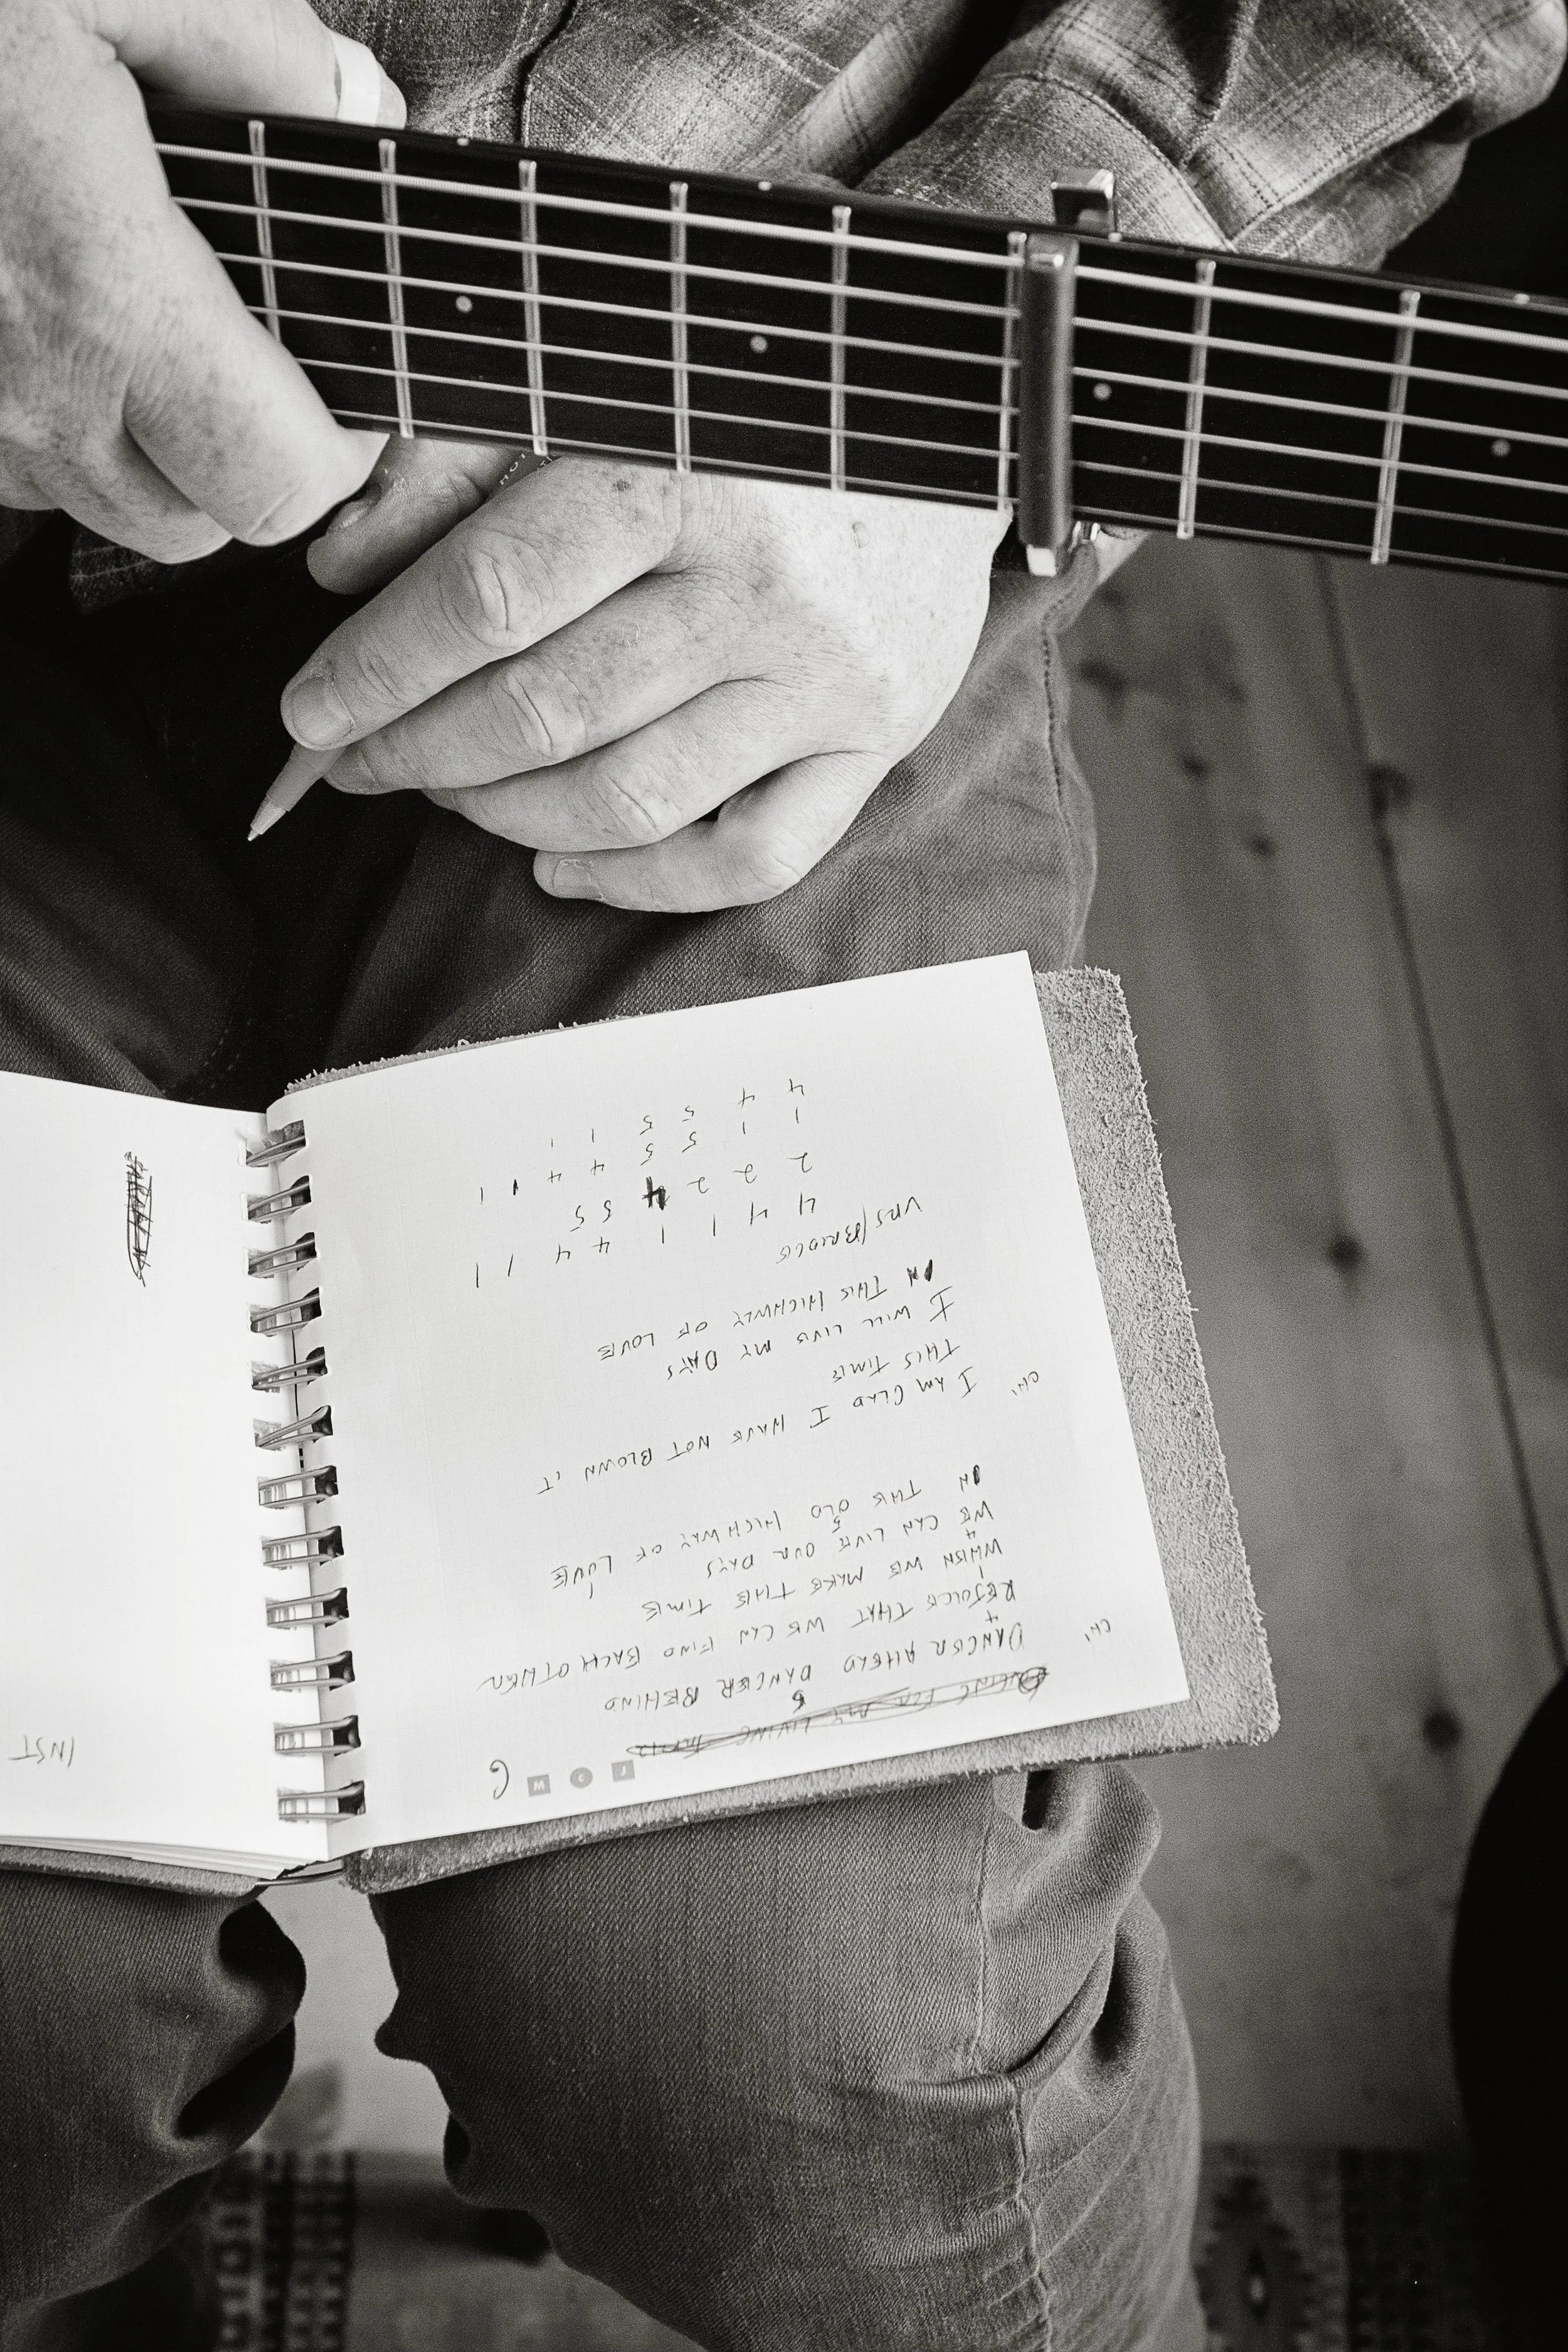 DANGER AHEAD DANGER BEHIND
CH1
4
REJOICE THAT WE CAN FIND EACH OTHER
1
WHEN WE MAKE THE TIME
4
WE CAN LIVE OUR DAYS
5 1
IN THE OLD HIGHWAY OF LOVE
I AM GLAD I HAVE NOT BLOWN IT
CH1
THIS TIME
I WILL LIVE MY DAYS
IN THIS HIGHWAY OF LOVE
VRS/BRIDGE
4 4 1 1 4 4 1 1
2 2 2 4 5 5
1 1 5 5 4 4 1 1
4 4 5 5 1 1
INST